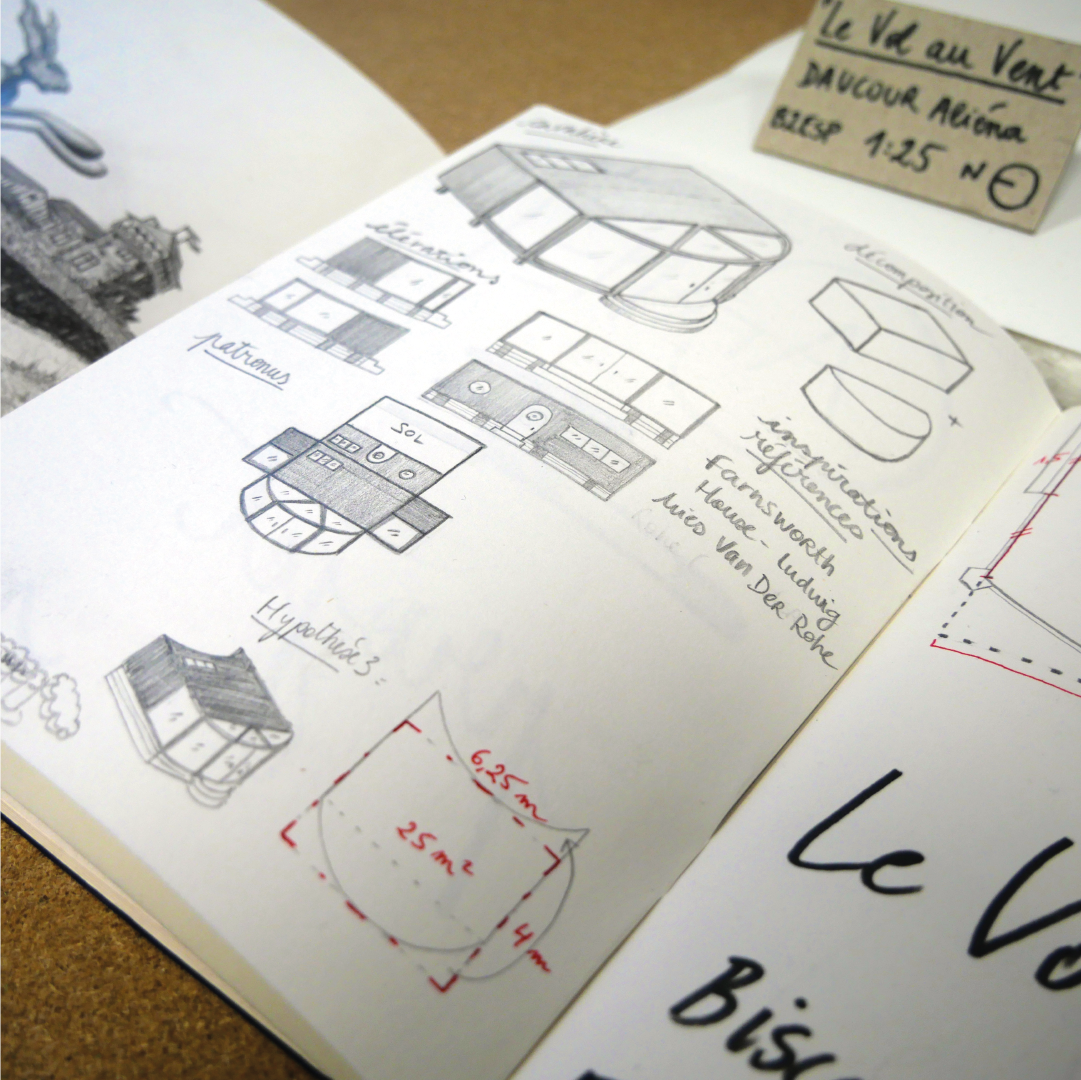 "Le Vol au Vent
DAUCOUR Aliéna
B2ESP 1:25 N
élévations
décomposition
patronus
SOL
+
inspirations
références
Farnsworth
House - Ludwig
Mies Van Der Rohe
Hypothèse 3:
6,25 m
25 m²
4 m
1,5
Le Vo
Bisc